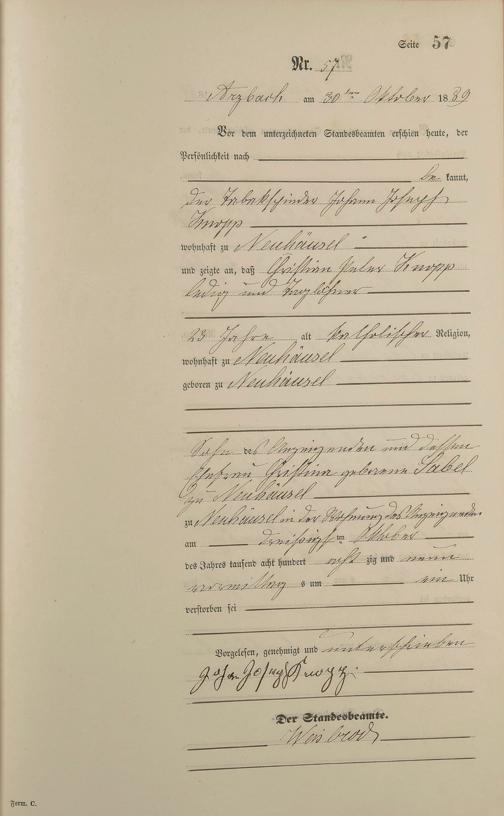 Seite 57
Nr. 57
Arzbach am 30ten Oktober 1889
Vor dem unterzeichneten Standesbeamten erschien heute, der
Persönlichkeit nach
be kannt,
der Tabakspinner Johann Joseph
Knopp
wohnhaft zu Neuhäusel
und zeigte an, daß Christian Peter Knopp
ledig und Taglöhner
23 Jahre alt katholischer Religion,
wohnhaft zu Neuhäusel
geboren zu Neuhäusel
Sohn des Anzeigenden und dessen
Ehefrau Christina geborene Sabel
zu Neuhäusel
zu Neuhäusel in der Wohnung des Anzeigenden
am dreißigsten Oktober
des Jahres tausend acht hundert acht zig und neun
vormittags um ein Uhr
verstorben sei
Vorgelesen, genehmigt und unterschrieben
Johan Josef Knopp
Der Standesbeamte.
Weisbrod
Form. C.